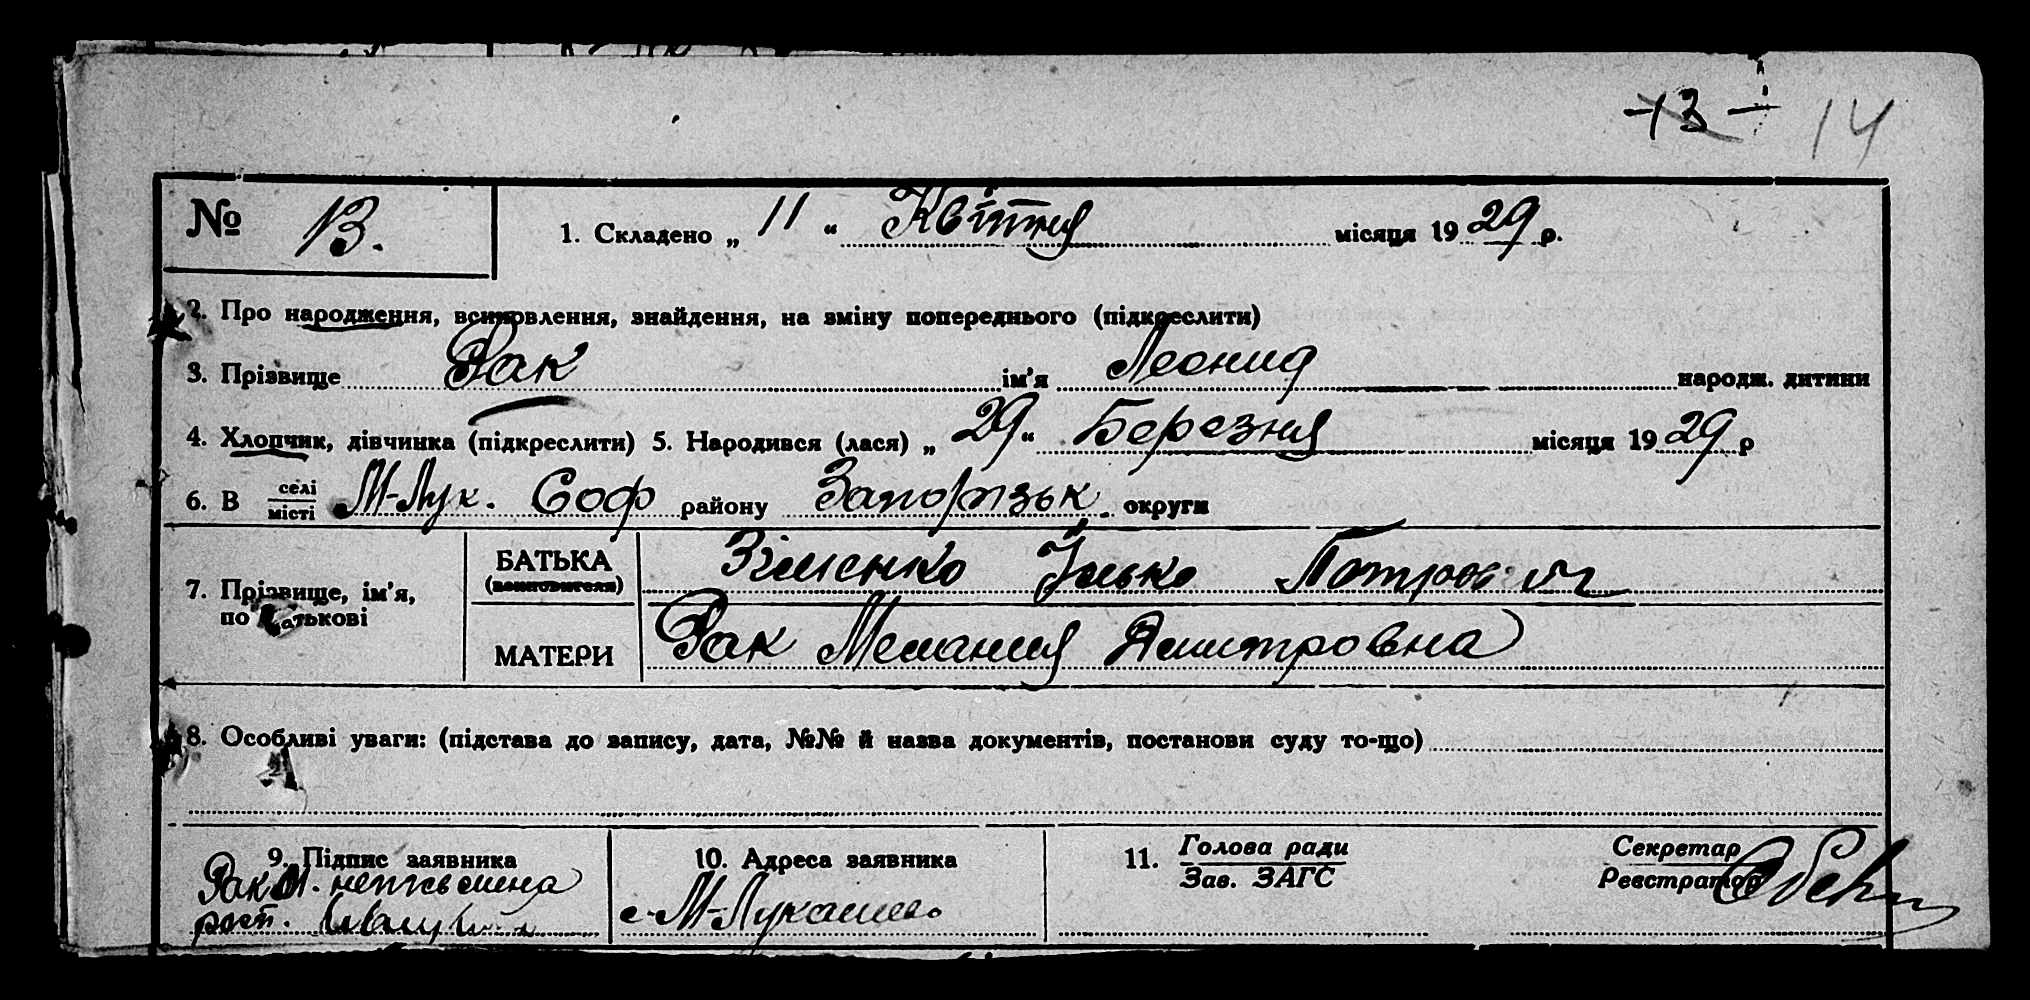 13 14
№ 13. 1. Складено „ 11 “ Квітня місяця 1929 р.
2. Про народження, всиновлення, знайдення, на зміну попереднього (підкреслити)
3. Прізвище Рак ім'я Леонид народж. дитини
4. Хлопчик, дівчинка (підкреслити) 5. Народився (лася) „ 29 “ Березня місяця 1929 р
6. В селі місті М-Лук. Соф району Запорізьк. округи
7. Прізвище, ім'я, по батькові
БАТЬКА (всиновителя) Зіменко Ілько Петрович
МАТЕРИ Рак Мелания Димтровна
8. Особливі уваги: (підстава до запису, дата, №№ й назва документів, постанови суду то-що)
9. Підпис заявника
Рак М. неписьмена
рост.
10. Адреса заявника
с. М-Лукашево
11. Голова ради
Зав. ЗАГС
Секретар
Реєстратор